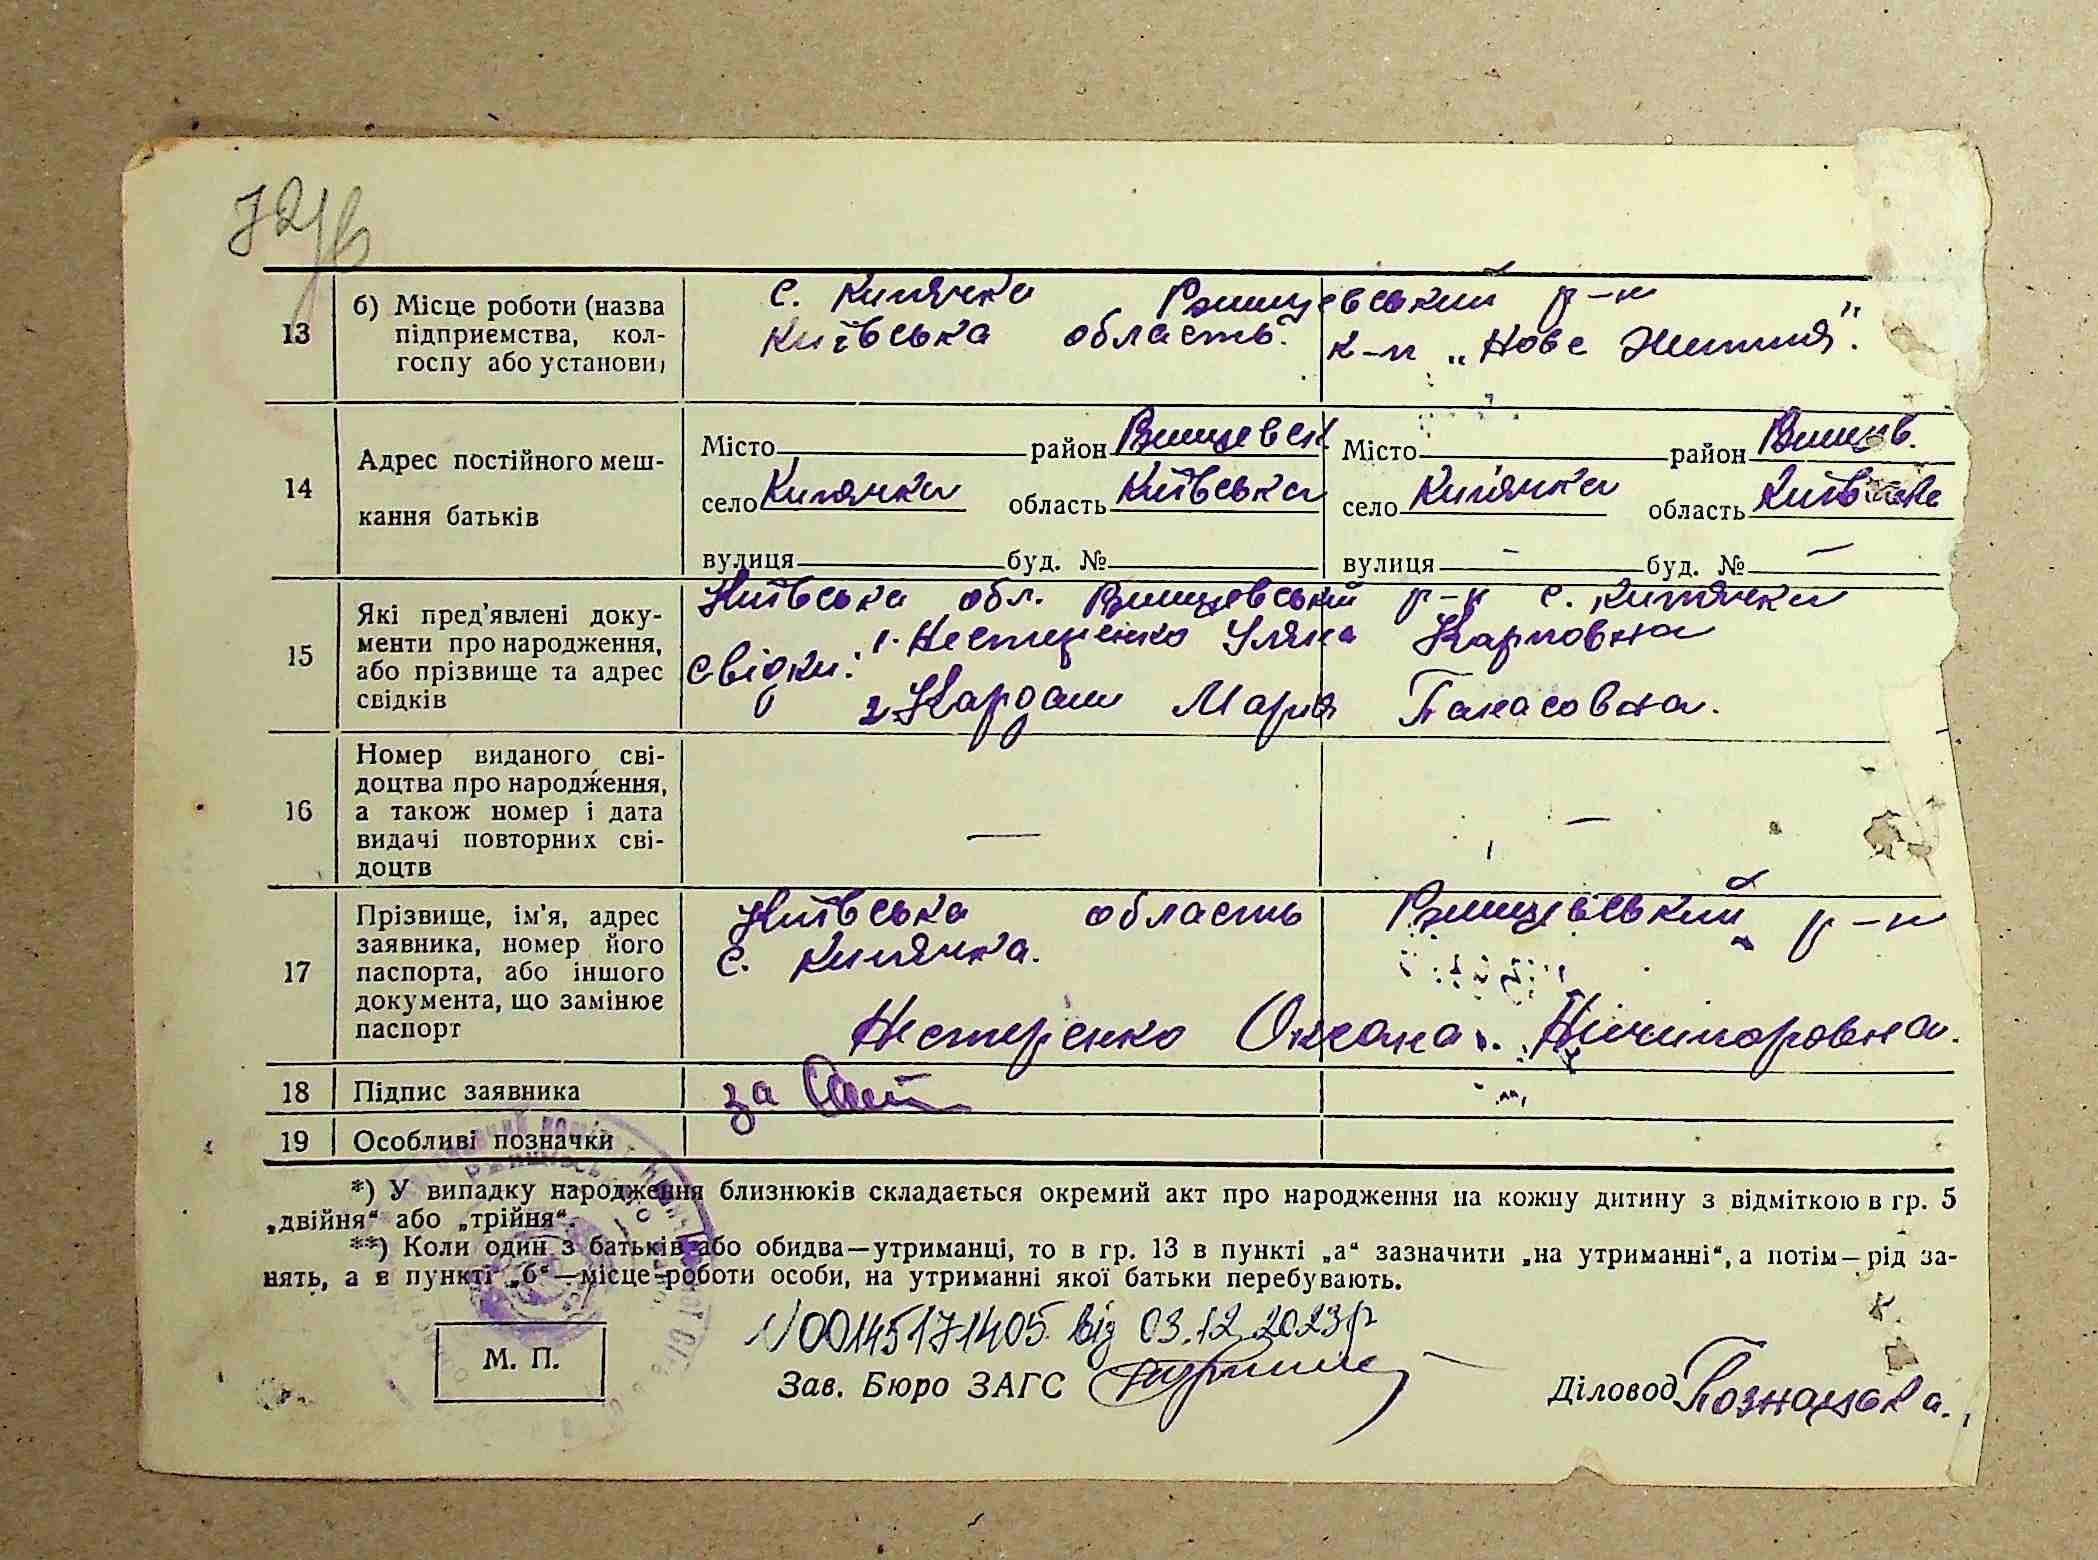 72/в
13 б) Місце роботи (назва підприємства, колгоспу або установи)
с. Кипячка Ржищевський р-н
Київська область. к-п „Нове Життя".
14 Адрес постійного мешкання батьків
Місто район Ржищевськ Місто район Ржищев.
село Кип'ячка область Київська село Кип'ячка область Київська
вулиця буд. № вулиця — буд. № —
15 Які пред'явлені документи про народження, або прізвище та адрес свідків
Київська обл. Ржищевський р-н с. Кип'ячка
свідки: 1. Нестеренко Уляна Карповна
2 Кардаш Мария Панасовна.
16 Номер виданого свідоцтва про народження, а також номер і дата видачі повторних свідоцтв
— —
17 Прізвище, ім'я, адрес заявника, номер його паспорта, або іншого документа, що замінює паспорт
Київська область Ржищевський р-н
с. Кип'ячка.
Нестеренко Оксана Нічипоровна.
18 Підпис заявника за
19 Особливі позначки
*) У випадку народження близнюків складається окремий акт про народження на кожну дитину з відміткою в гр. 5
„двійня" або „трійня".
**) Коли один з батьків або обидва—утриманці, то в гр. 13 в пункті „а" зазначити „на утриманні", а потім—рід за-
нять, а в пункті „б"—місце роботи особи, на утриманні якої батьки перебувають.
N00145171405 від 03.12.2023р
М. П.
Зав. Бюро ЗАГС
Діловод Познацька.